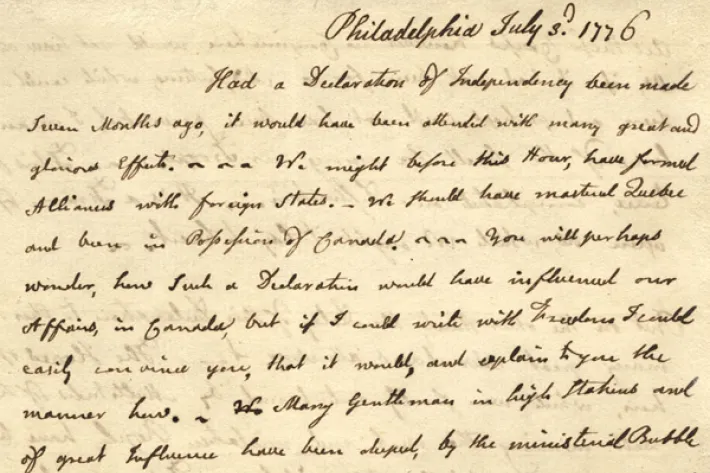 Philadelphia July 3.d 1776
Had a Declaration of Independency been made
seven Months ago, it would have been attended with many great and
glorious Effects. ~ ~ ~ We might before this Hour, have formed
Alliances with foreign States. – We should have mastered Quebec
and been in Possession of Canada. ~ ~ ~ You will perhaps
wonder, how such a Declaration would have influenced our
Affairs, in Canada, but if I could write with Freedom I could
easily convince you, that it would, and explain to you the
manner how. – Many Gentlemen in high Stations and
of great Influence have been duped, by the ministerial Bubble